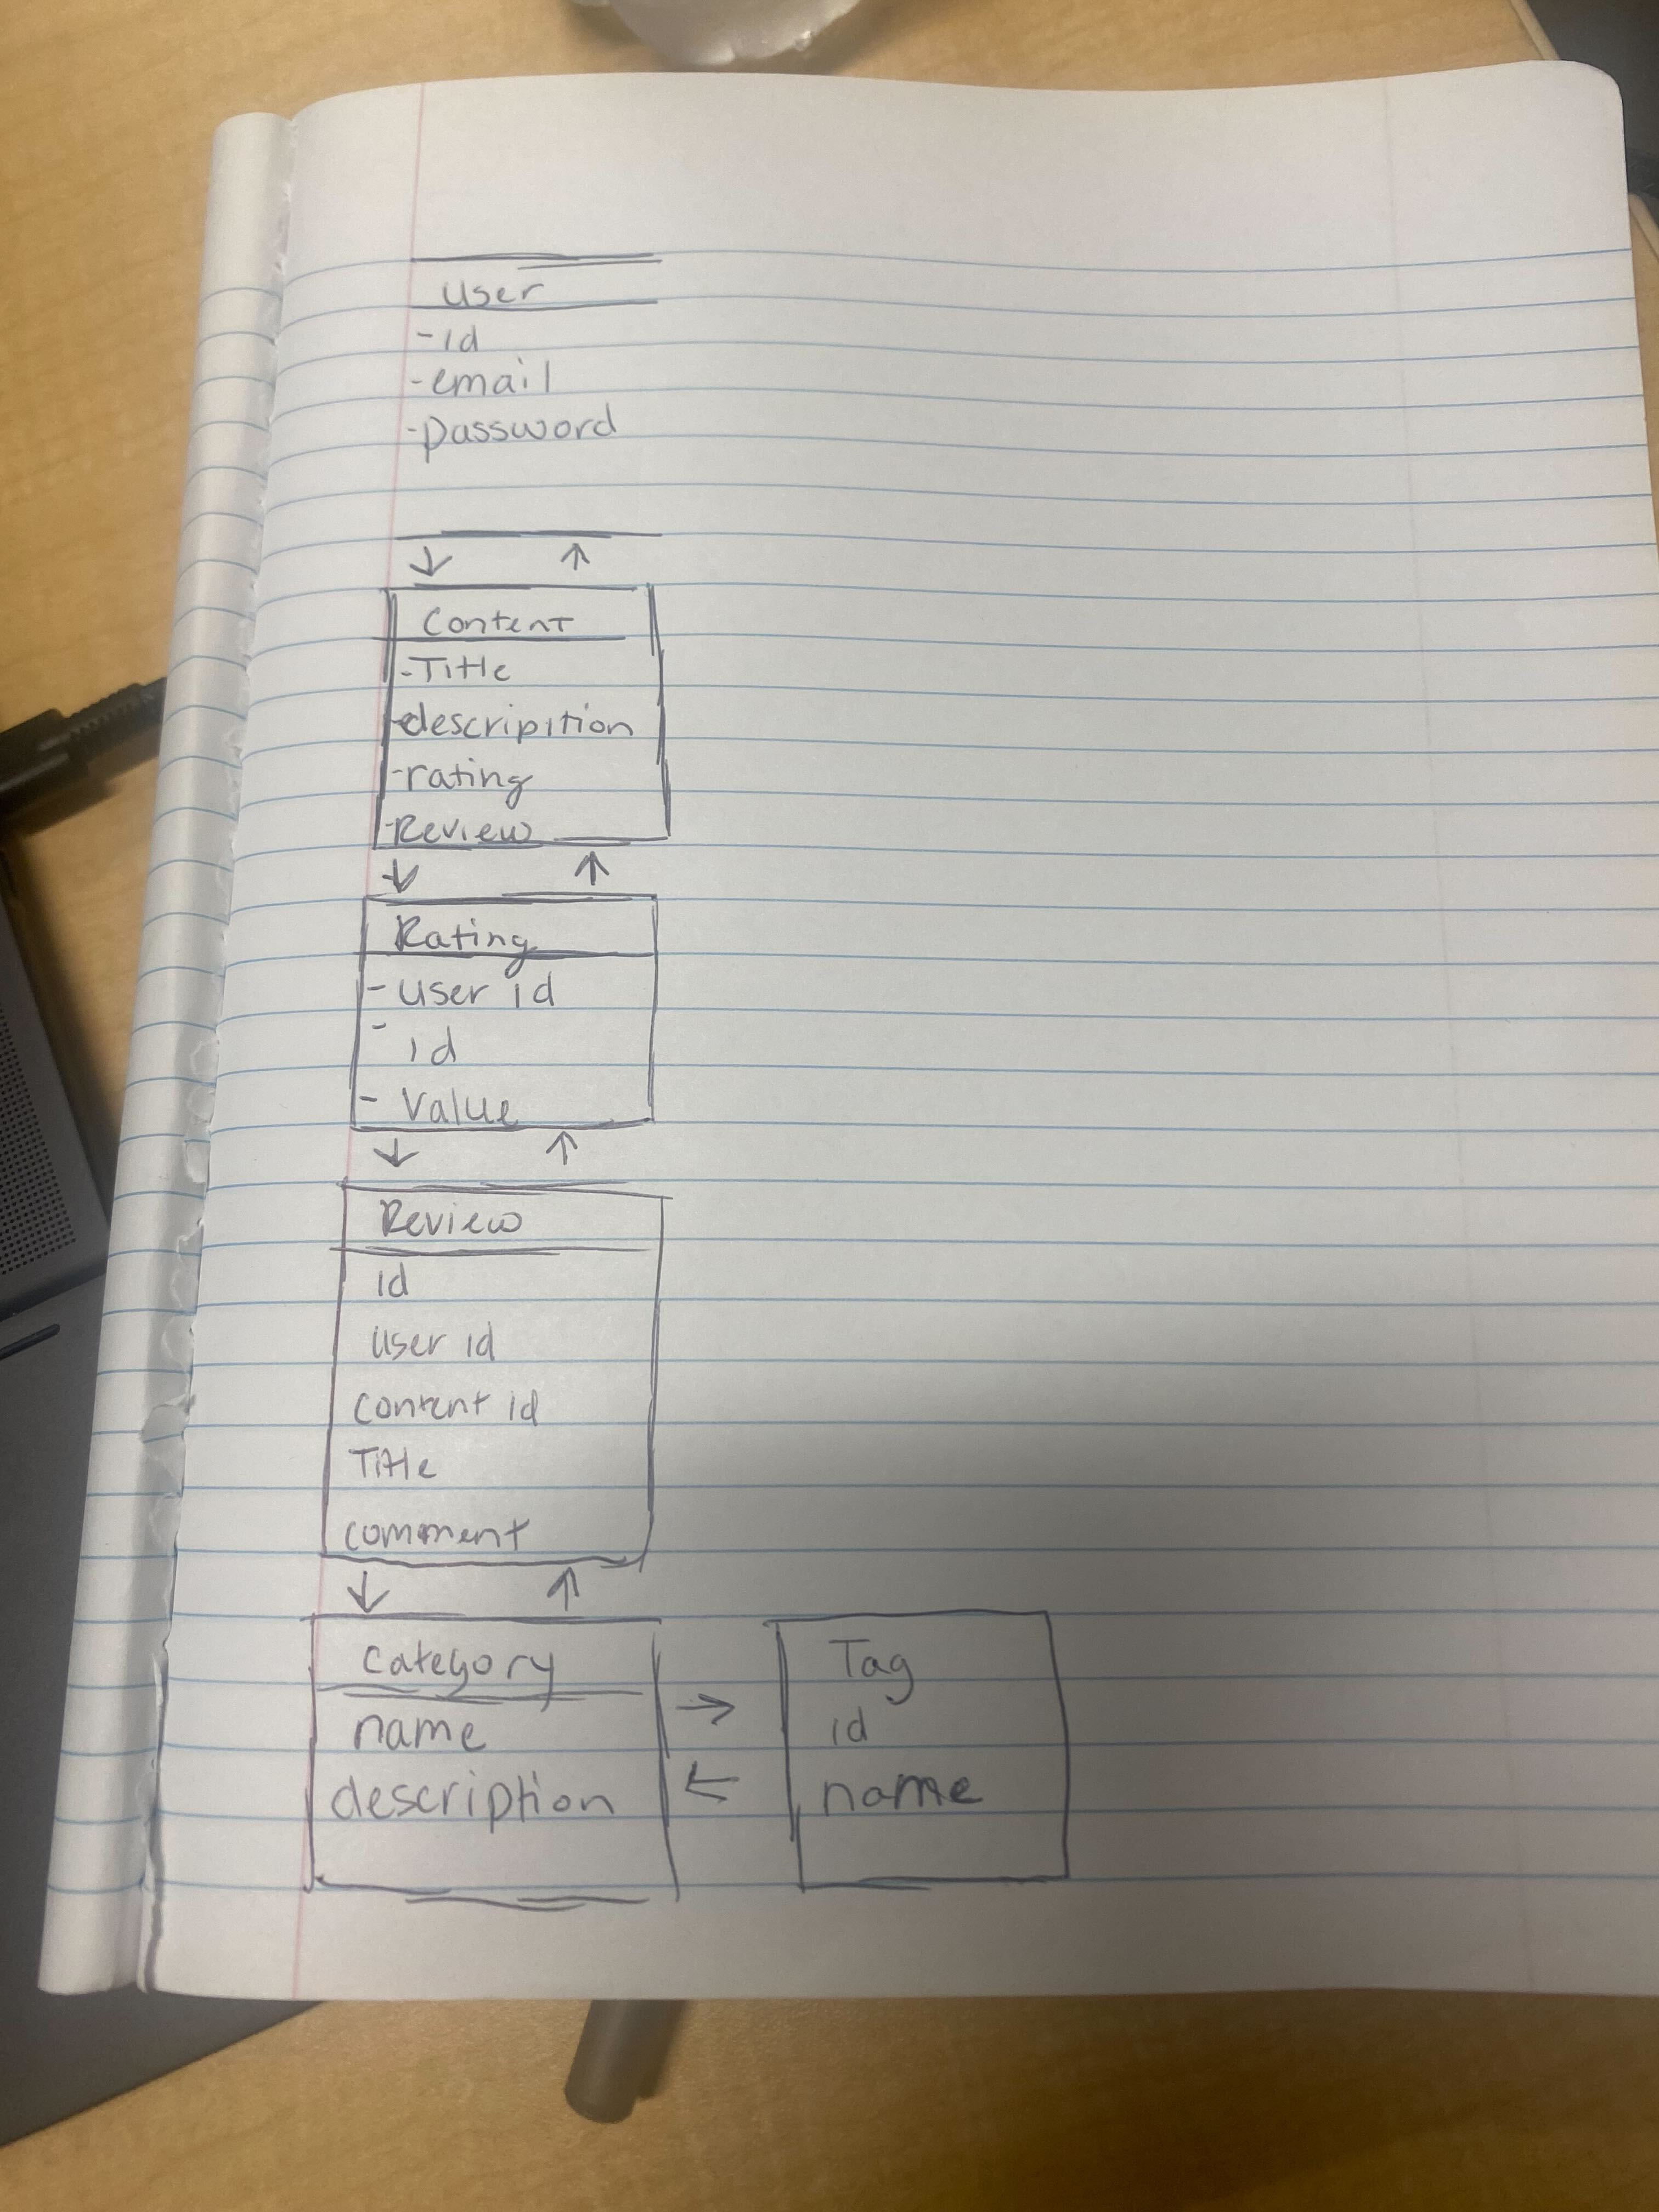 user
-id
-email
-password
Content
-Title
-descripition
-rating
-Review
Rating
- user id
- id
- Value
Review
id
user id
content id
Title
comment
category
name
description
Tag
id
name